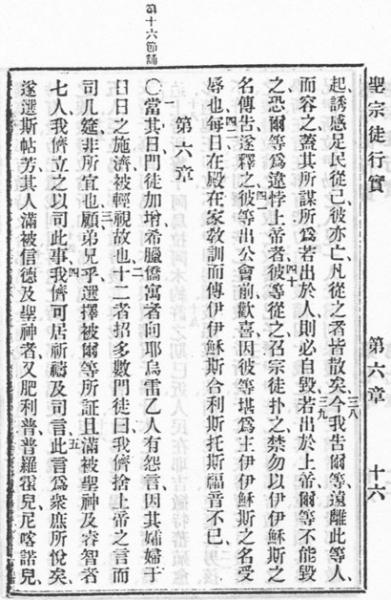 聖宗徒行實 第六章 十六
起誘感足民從己彼亦亡凡從之者皆散矣、今我告爾等、遠離此等人、
而容之蓋其所謀所爲若出於人則必自毀、若出於上帝爾等不能毀
之恐爾等爲逆悖上帝者、彼等從之、召宗徒扑之、禁勿以伊伊穌斯之
名傳告、遂釋之、彼等出公會前歡喜、因彼等堪爲主伊伊穌斯之名受
辱也、每日在殿在家教訓而傳伊伊穌斯合利斯托斯福音不已、
第六章
第十六節誦
〇當其日門徒加增、希臘僑寓者向耶烏雷乙人有怨言、因其孀婦于
日日之施濟被輕視故也、十二者招多數門徒曰、我儕捨上帝之言而
司几筵、非所宜也、顧弟兄乎、選擇被爾等所証且滿被聖神及睿智者
七人、我儕立之以司此事、我儕可居祈禱及司言、此言爲衆庶所悅矣、
遂選斯帖芳、其人滿被信德及聖神者、又肥利普、普羅霍兒、尼喀諾兒、